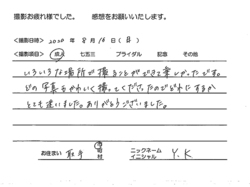 撮影お疲れ様でした。 感想をお願いいたします。
<撮影日時> 2020 年 8 月 16 日 (日)
<撮影項目> 成人 七五三 ブライダル 記念 その他
いろいろな場所で撮ることができて楽しかったです。
どの写真もかわいく撮ってくださったのでどれにするか
とても迷いました。ありがとうございました。
お住まい 取手 市 町 村 ニックネーム イニシャル Y.K